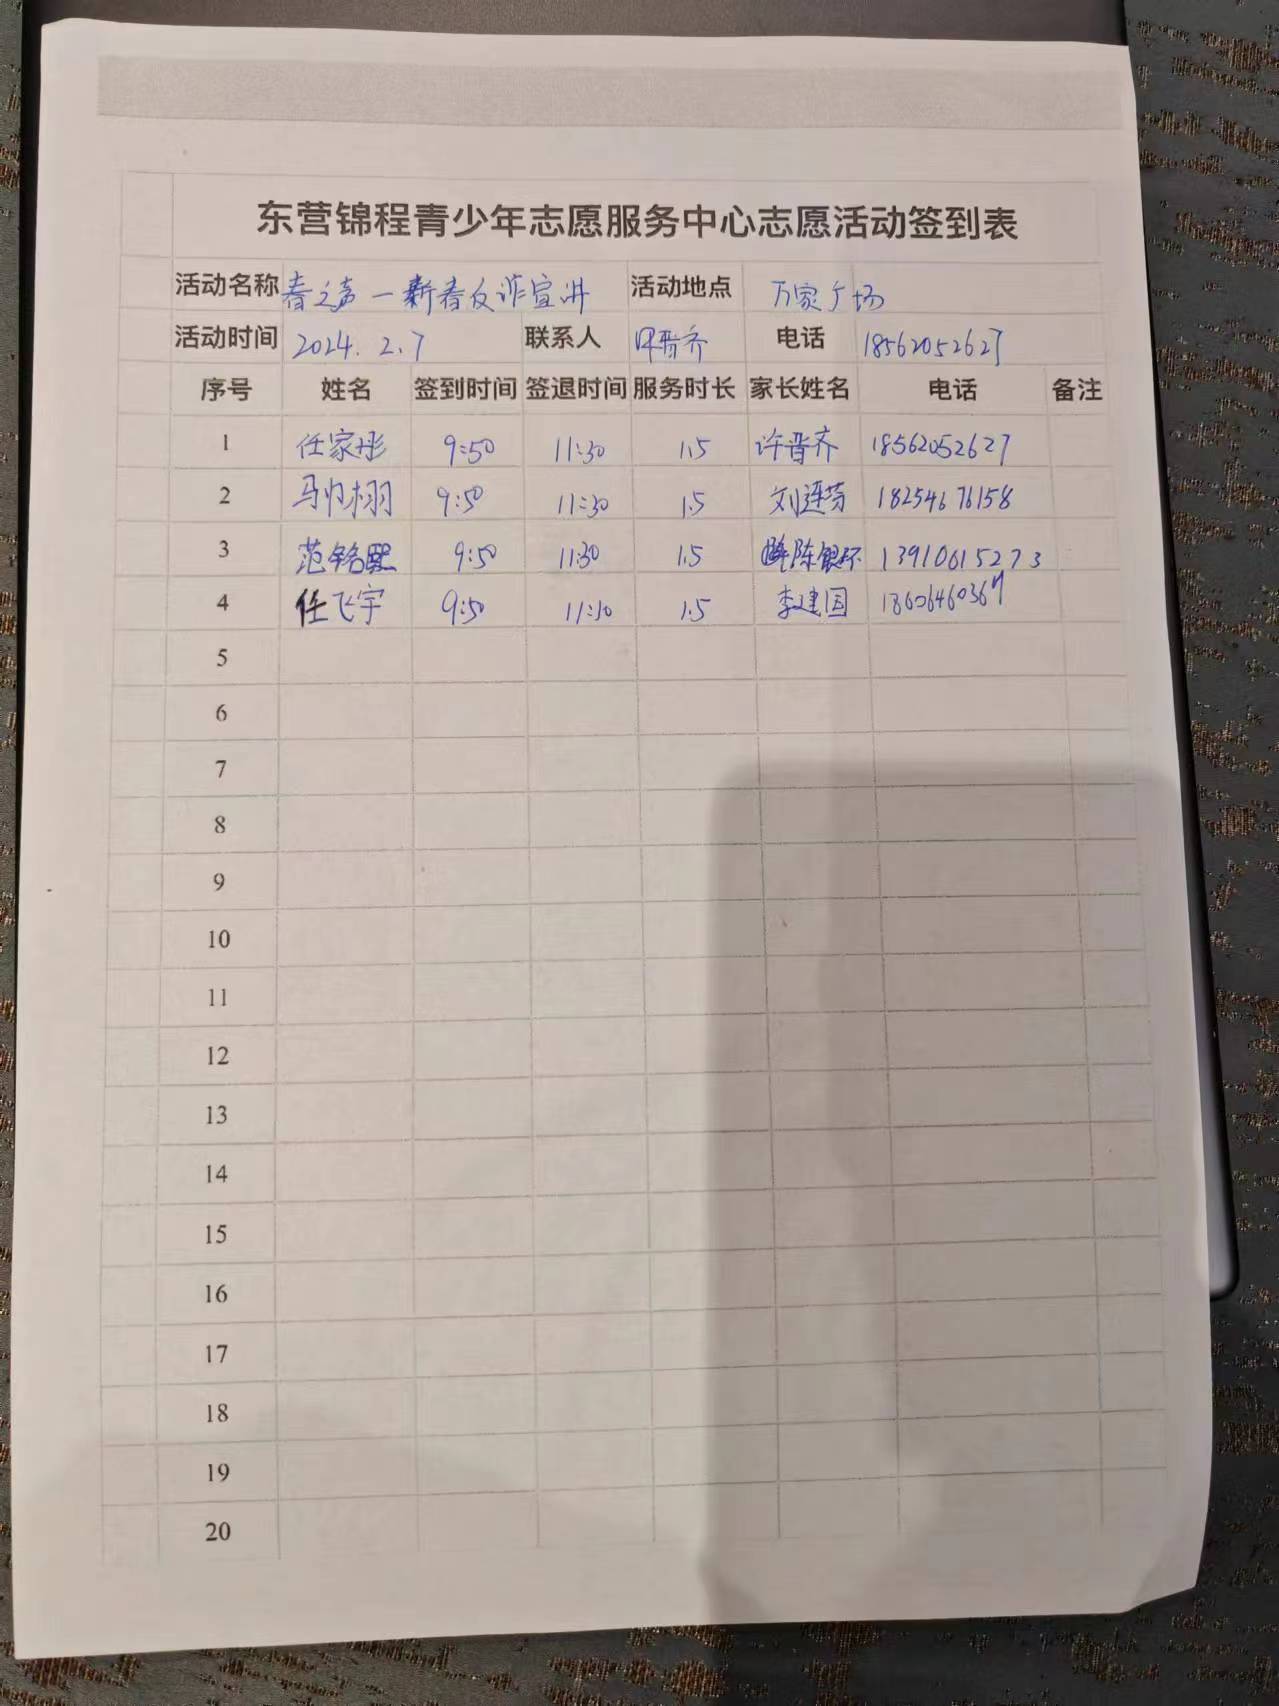 东营锦程青少年志愿服务中心志愿活动签到表
活动名称 春之声一新春反诈宣讲 活动地点 万家广场
活动时间 2024.2.7 联系人 晋齐 电话 18562052627
序号 姓名 签到时间 签退时间 服务时长 家长姓名 电话 备注
1 任家彤 9:50 11:30 1.5 许晋齐 18562052627
2 马 栩 9:50 11:30 1.5 刘莲芳 18254676158
3 范铭熙 9:50 11:30 1.5 陈银环 13910615273
4 任飞宇 9:50 11:30 1.5 李建国 18606460367
5
6
7
8
9
10
11
12
13
14
15
16
17
18
19
20